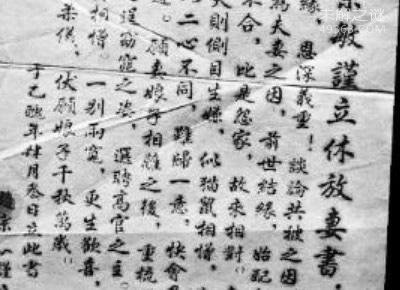 謹立休放妻書，
緣 恩深義重！ 談論共被之因
為夫妻之因， 前世結緣， 始配
來合， 此是怨家， 故來相對
夫則側目生嫌， 似猫鼠相憎，
二心不同 難歸一意， 快會
願妻娘子相離之後， 重梳
窈窕之姿， 選聘高官之主。
相憎。一別兩寬， 更生歡喜，
儀。 伏願娘子千秋萬歲
于乙醜年肆月叁日立此書
未解之谜